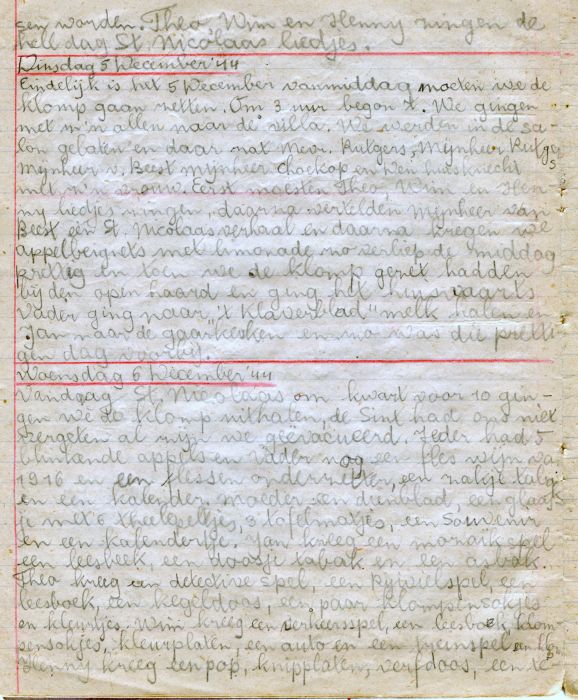 sen worden. Theo, Wim en Henny zingen de
heel dag St. Nicolaas liedjes.
Dinsdag 5 December '44
Eindelijk is het 5 December vanmiddag moeten we de
klomp gaan zetten. Om 3 uur begon 't. We gingen
met z'n allen naar de villa. We werden in de sa-
lon gelaten en daar zat Mevr. Rutgers, Mijnheer Rutgers
Mijnheer v. Beest mijnheer en een huisknecht
met z'n vrouw. Eerst moesten Theo, Wim en Hen-
ny liedjes zingen, daarna vertelden Mijnheer van
Beest een St. Nicolaasverhaal en daarna kregen we
appelbeignets met limonade zo verliep de middag
prettig en toen we de klomp gezet hadden
bij den open haard en ging het huiswaarts
Vader ging naar "'t Klaverblad" melk halen en
Jan naar de gaarkeuken en zo was die pretti-
gen dag voorbij.
Woensdag 6 December '44
Vandaag St. Nicolaas om kwart voor 10 gin-
gen we de klomp uithalen, de Sint had ons niet
vergeten al zijn we geëvacueerd. Ieder had 5
blinkende appels en vader nog een fles wijn van
1916 en een flessen onderzetter, een zalfje talg
en een kalender, moeder een dienblad, een glaas-
je met 6 theelepeltjes, 3 tafelmatjes, een Souvenir
en een kalendertje. Jan kreeg een mozaikspel
een leesboek, een doosje tabak en een asbak.
Theo kreeg een detective spel, een rijwielspel, een
leesboek, een kegeldoos, een paar klompensokjes
en kleurtjes. Wim kreeg een verkeersspel, een leesboek, klom-
pensokjes, kleurplaten, een auto en een treinspel en
Henny kreeg een pop, knipplaten, verfdoos, een le-